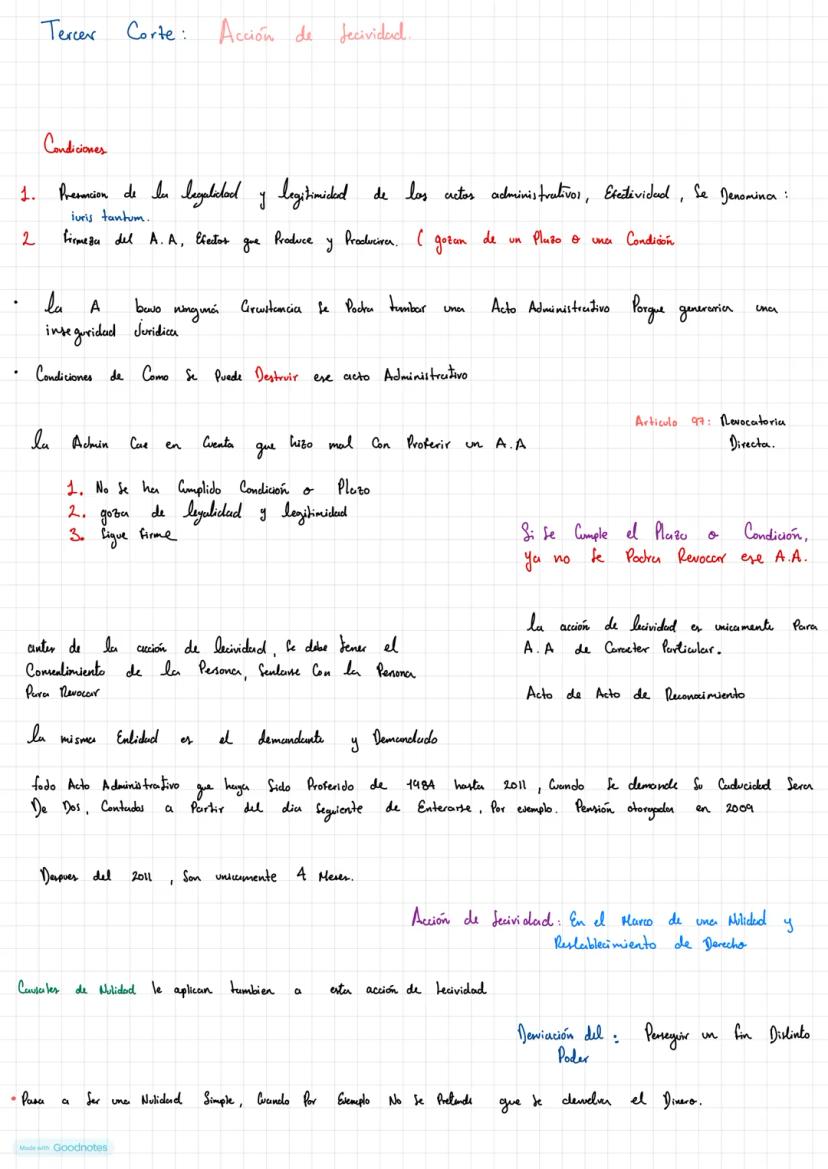 Tercer Corte: Acción de lecividad.
Condiciones
1. Presuncion de la legalidad y legitimidad de los actos administrativos, Efectividad, Se Denomina:
iuris tantum.
2 firmeza del A.A, Efectos que Produce y Producira. ( gozan de un Plazo o una Condición
• la A bajo ninguná Circustancia Se Podra tumbar una Acto Administrativo Porque generaria una
inseguridad Juridica
• Condiciones de Como Se Puede Destruir ese acto Administrativo
Articulo 97: Revocatoria
Directa.
la Admin Cae en Cuenta que hizo mal Con Proferir un A.A
1. No Se ha Cumplido Condición o Plazo
2. goza de legalidad y legitimidad
3. Sigue firme
Si Se Cumple el Plazo o Condición,
Ya no Se Podra Revocar ese A.A.
la acción de lecividad es unicamente Para
A.A de Caracter Particular.
antes de la acción de lecividad, Se debe tener el
Consentimiento de la Persona, Sentarse Con la Persona
Para Revocar
Acto de Acto de Reconocimiento
la misma Entidad es el demandante y Demandado
todo Acto Administrativo que haya Sido Proferido de 1984 hasta 2011, Cuando Se demande Su Caducidad Sera
De Dos, Contados a Partir del dia Seguiente de Enterarse, Por ejemplo. Pensión otorgada en 2009
Despues del 2011, Son unicamente 4 Meses.
Acción de lecividad: En el Marco de una Nulidad y
Restablecimiento de Derecho
Causales de Nulidad le aplican tambien a esta acción de lecividad
Desviación del : Perseguir un fin Distinto
Poder
• Pasa a Ser una Nulidad Simple, Cuando Por Exemplo No Se Pretende que Se devuelva el Dinero.
Made with Goodnotes